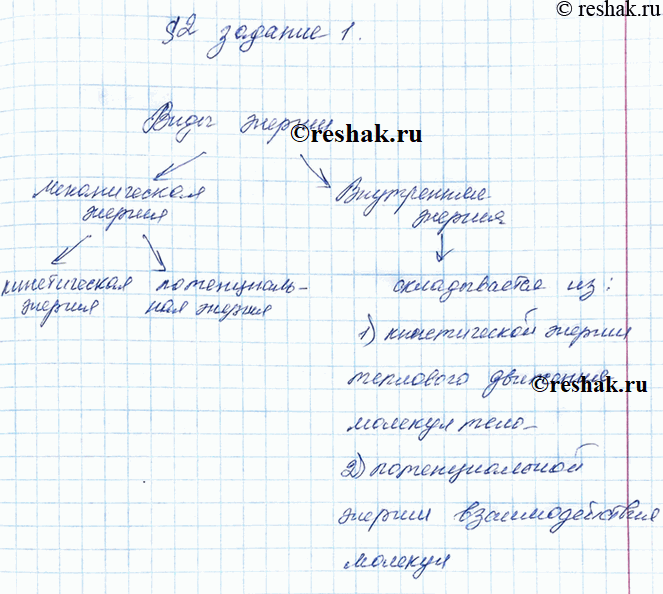 © reshak.ru
§2 задание 1.
Виды энергии
©reshak.ru
Механическая
энергия
Внутренняя
энергия
кинетическая
энергия
потенциаль-
ная энергия
складывается из:
1) кинетической энергии
теплового движения
©reshak.ru
молекул тела
2) потенциальной
энергии взаимодействия
молекул